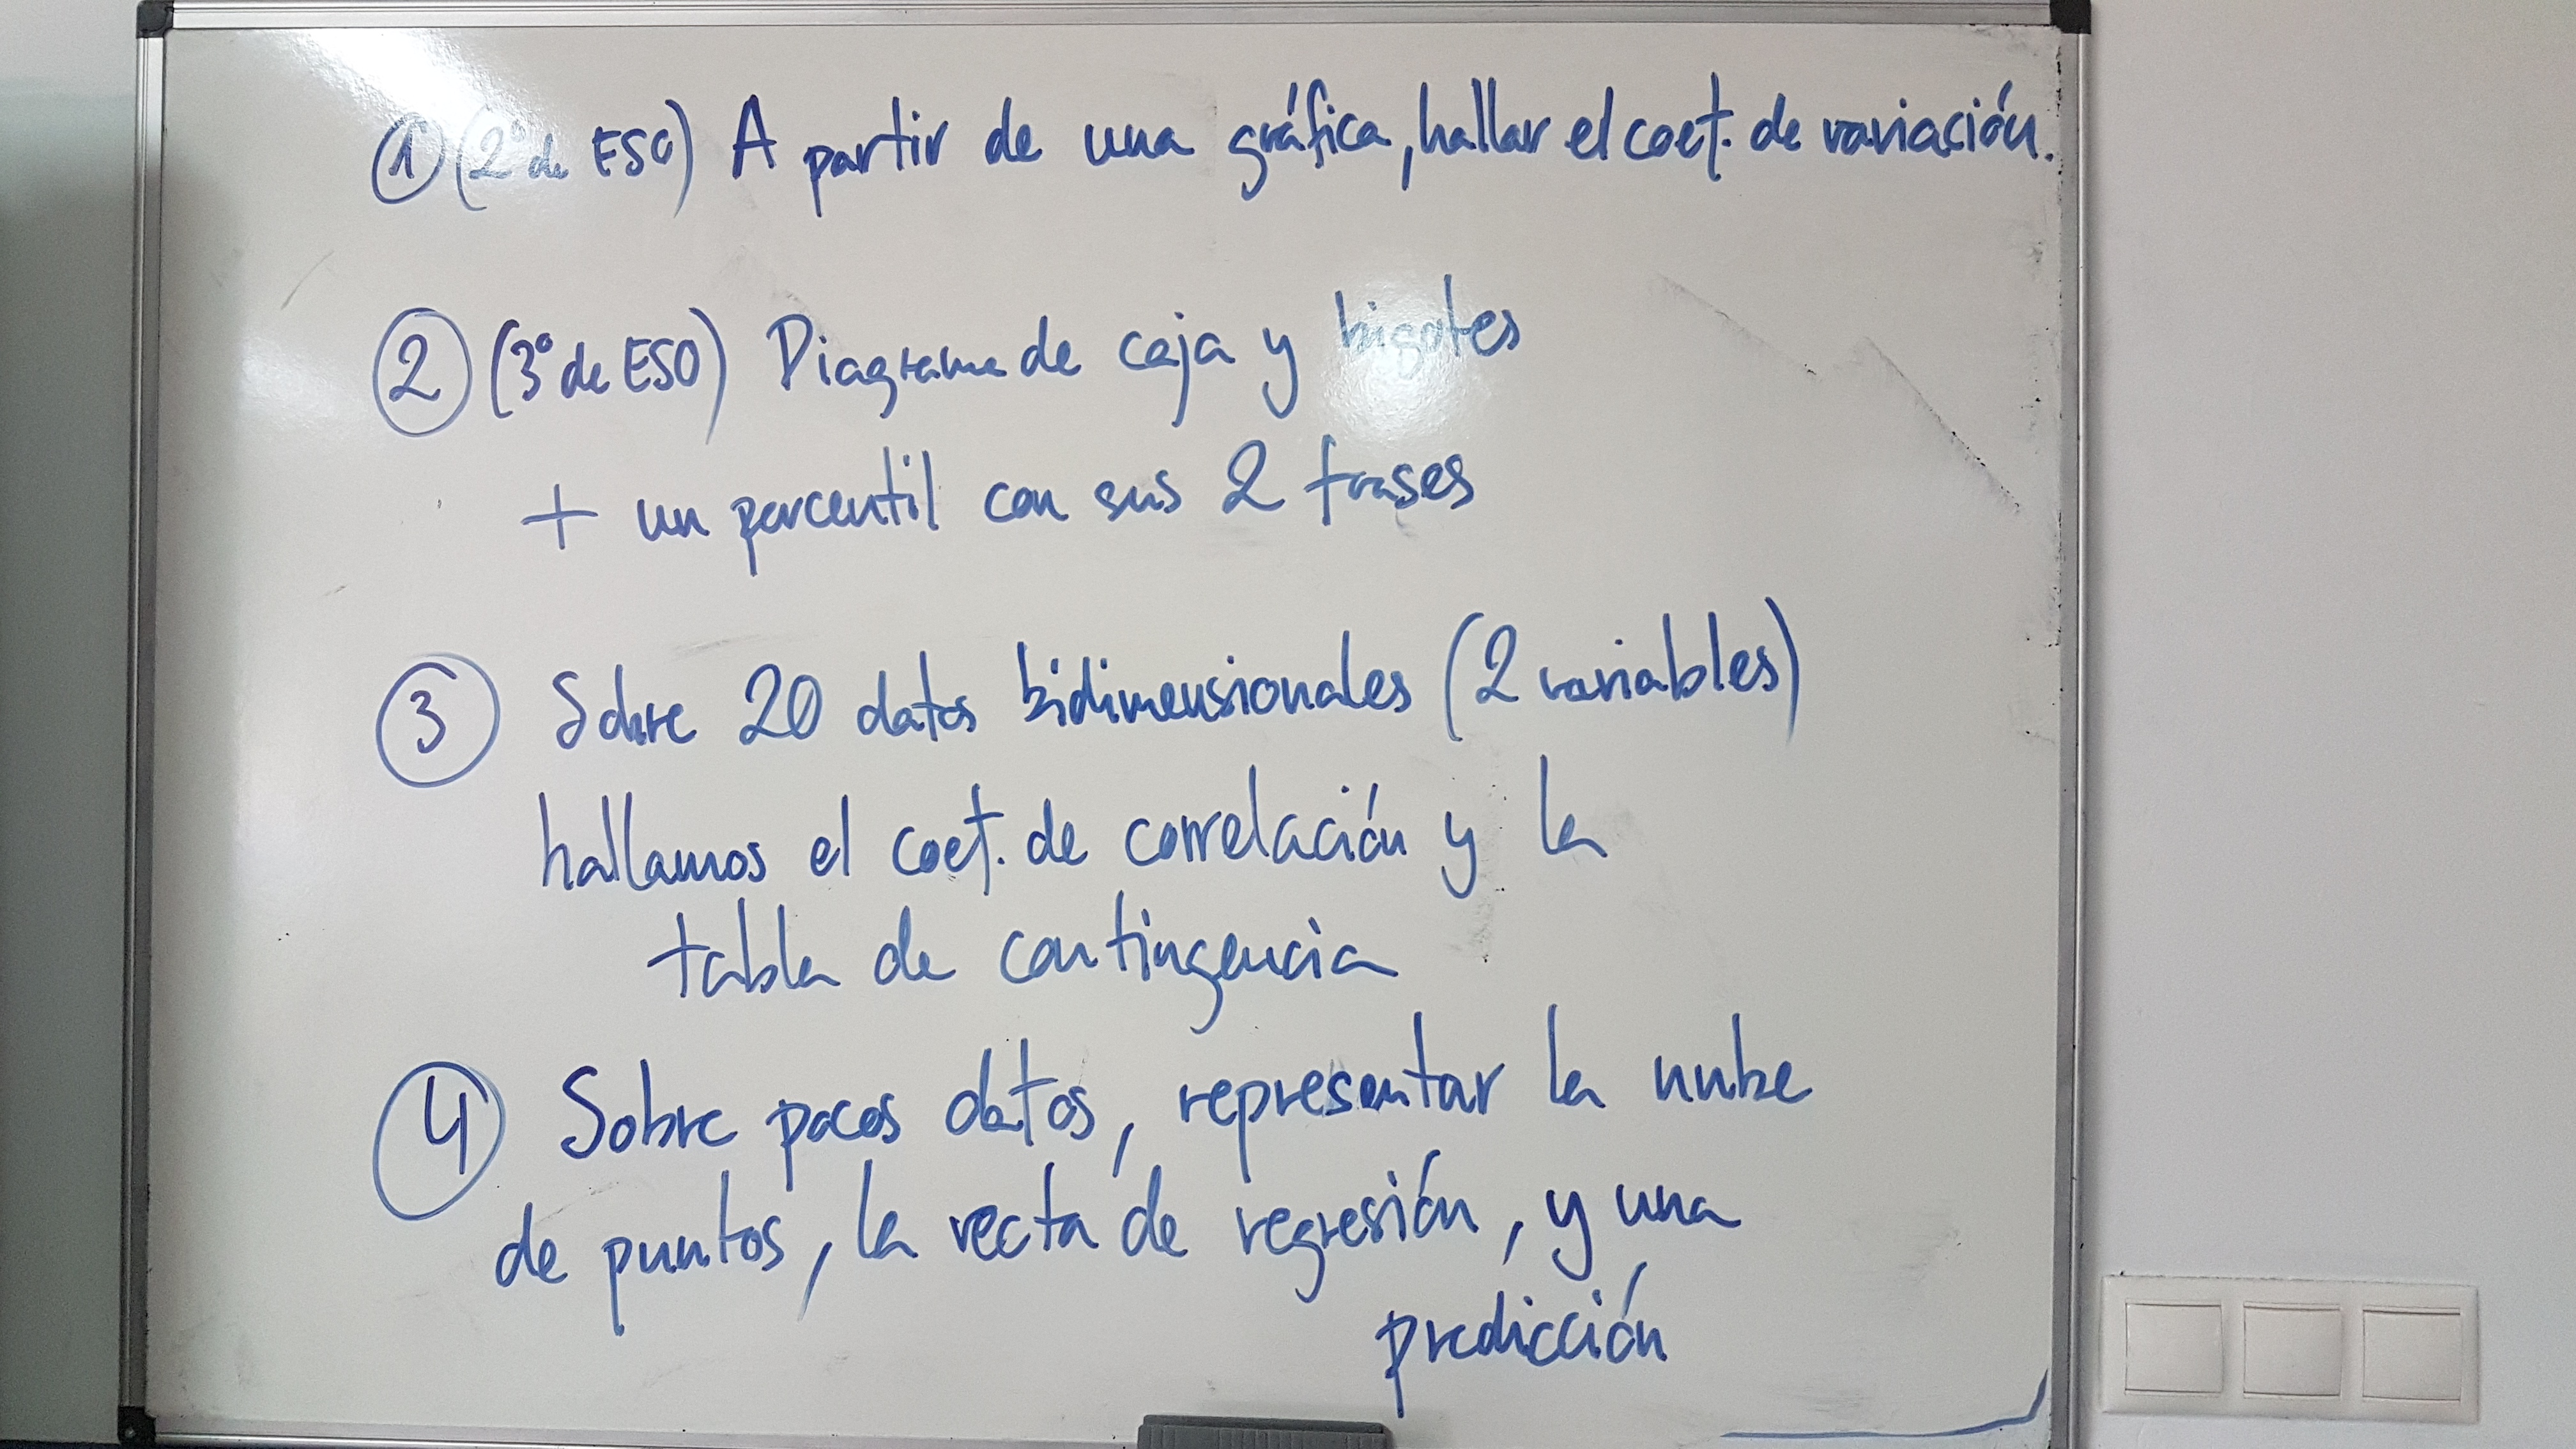 ① (2º de ESO) A partir de una gráfica, hallar el coef. de variación.
② (3º de ESO) Diagrama de caja y bigotes
+ un percentil con sus 2 frases
③ Sobre 20 datos bidimensionales (2 variables)
hallamos el coef. de correlación y la
tabla de contingencia
④ Sobre pocos datos, representar la nube
de puntos, la recta de regresión, y una
predicción